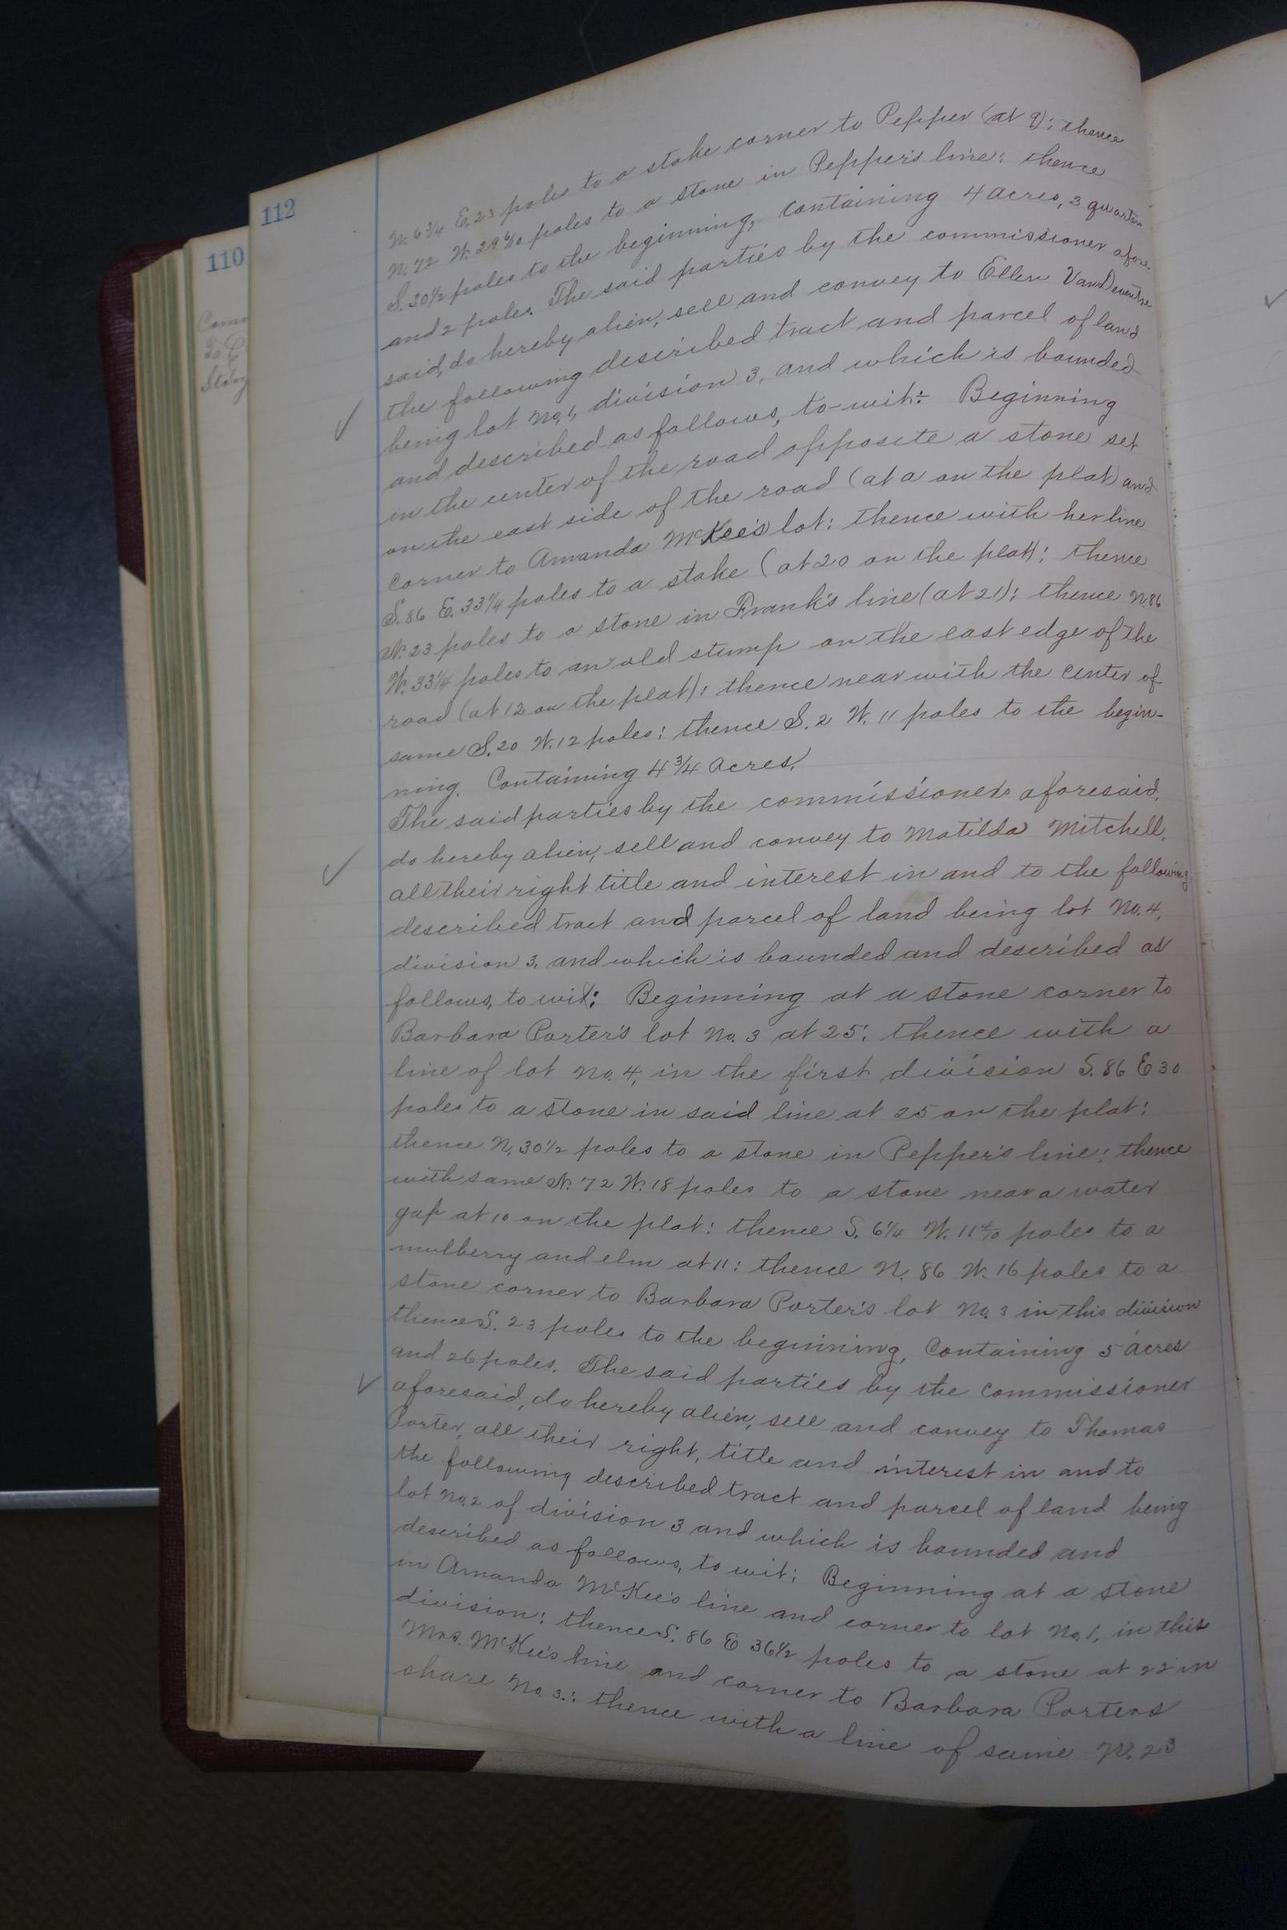 112
110
N. 6 3/4 E. 23 poles to a stake corner to Pepper (at 9); thence
N. 72 W. 29 6/10 poles to a stone in Pepper's line; thence
S. 30 1/2 poles to the beginning, containing 4 acres, 3 quarters
and 2 poles. The said parties by the commissioner afore-
said, do hereby alien, sell and convey to Ellen VanDeventre
the following described tract and parcel of land
being lot No. 1, division 3, and which is bounded
and described as follows, to-wit: Beginning
in the center of the road opposite a stone set
on the east side of the road (at a on the plat) and
corner to Amanda McKee's lot; thence with her line
S. 86 E. 33 1/4 poles to a stake (at 20 on the plat); thence
N. 23 poles to a stone in Frank's line (at 21); thence N. 86
W. 33 1/4 poles to an old stump on the east edge of the
road (at 12 on the plat); thence near with the center of
same S. 20 W. 12 poles; thence S. 2 W. 11 poles to the begin-
ning. Containing 4 3/4 acres.
The said parties by the commissioner aforesaid,
do hereby alien, sell and convey to Matilda Mitchell,
all their right title and interest in and to the following
described tract and parcel of land being lot No. 4,
division 3, and which is bounded and described as
follows, to wit: Beginning at a stone corner to
Barbara Porter's lot No. 3 at 25; thence with a
line of lot No. 4, in the first division S. 86 E 30
poles to a stone in said line at 25 on the plat;
thence N. 30 1/2 poles to a stone in Pepper's line; thence
with same N. 72 W. 18 poles to a stone near a water
gap at 10 on the plat; thence S. 6 1/4 W. 11 4/10 poles to a
mulberry and elm at 11; thence N. 86 W. 16 poles to a
stone corner to Barbara Porter's lot No. 3 in this division
thence S. 23 poles to the beginning, Containing 5 acres
and 26 poles. The said parties by the commissioner
aforesaid, do hereby alien, sell and convey to Thomas
Porter, all their right, title and interest in and to
the following described tract and parcel of land being
lot No. 2 of division 3 and which is bounded and
described as follows, to wit; Beginning at a stone
in Amanda McKee's line and corner to lot No. 1, in this
division; thence S. 86 E 36 1/2 poles to a stone at 22 in
Mrs. McKee's line and corner to Barbara Porters
share No. 3.; thence with a line of same N. 23